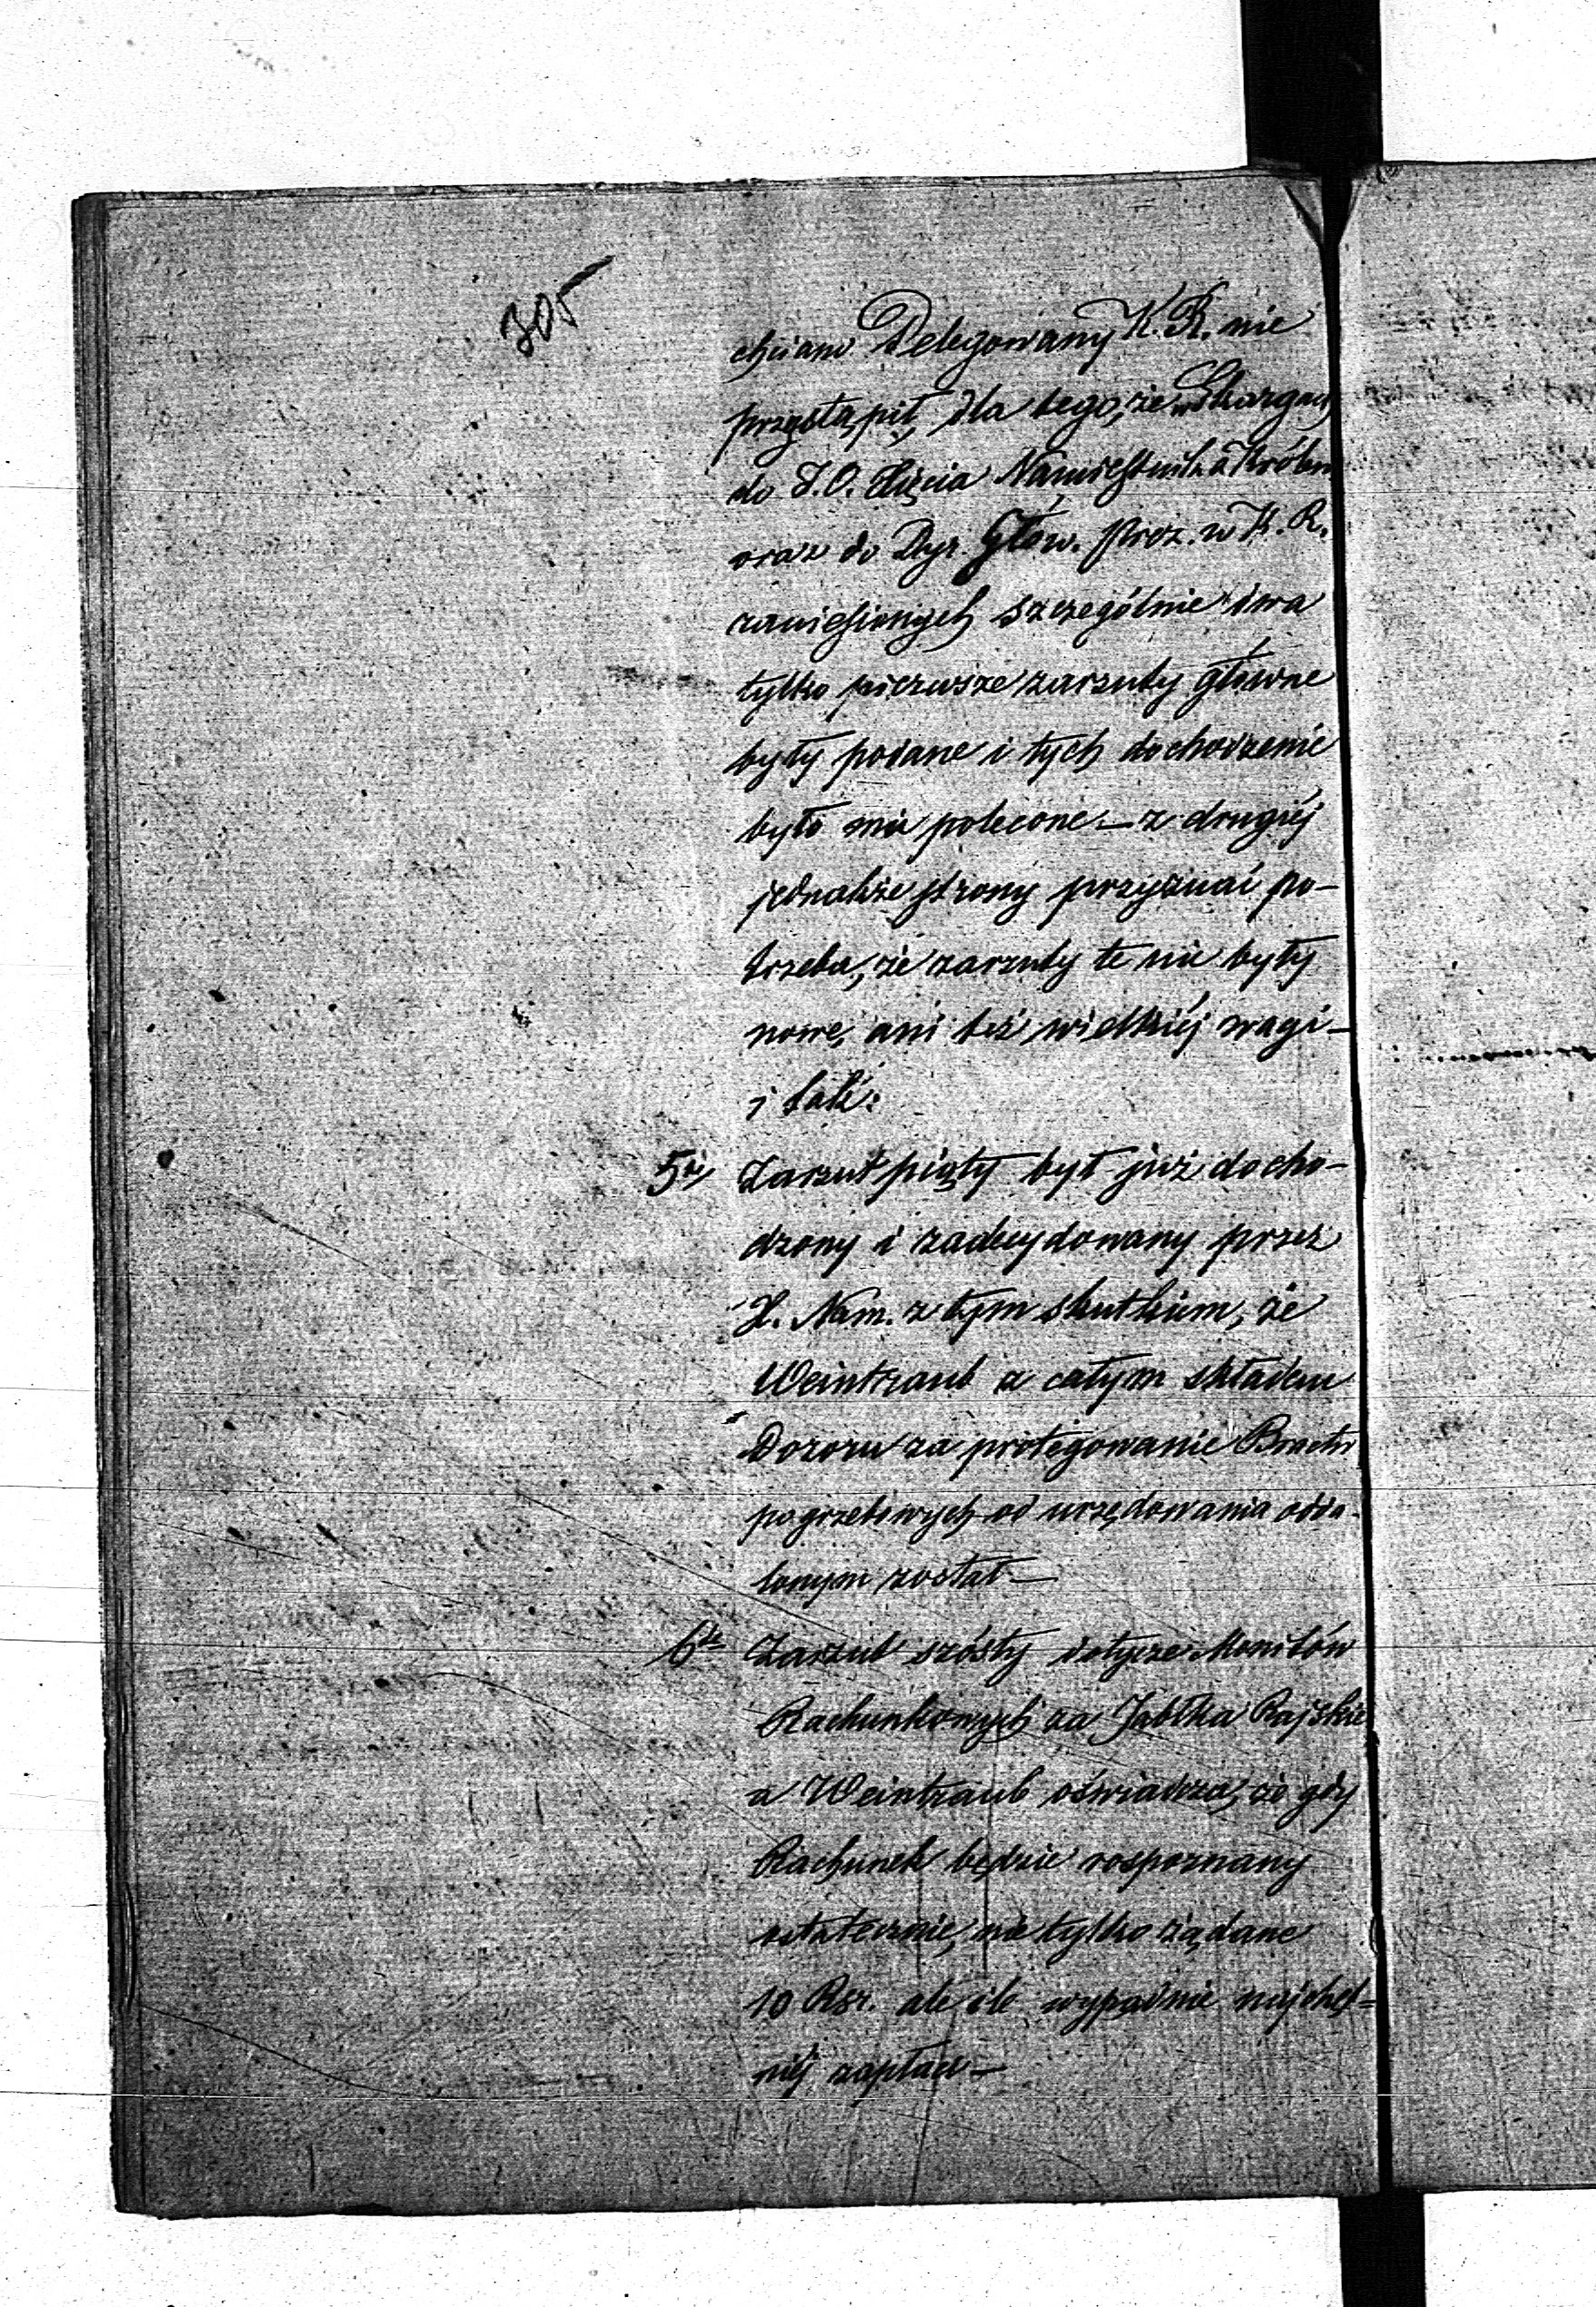 305
Delegowany K. R. nie
przystąpił, dla tego, że w Skargach
do J. O. Xięcia Namiestnika Królew
oraz do Dyr. Głów. Prez. w K. R.
zaniesionych szczególnie dwa
tylko pierwsze zarzuty główne
były podane i tych dochodzenie
było mu polecone – z drugiéj
jednakże strony przyznać po–
trzeba, że zarzuty te nie były
nowe, ani też wielkiéj wagi –
i tak:
5te Zarzut piąty był już docho–
dzony i zadecydowany przez
X. Nam. z tym skutkiem, że
Weintraub z całym składem
Dozoru za protegowanie Bractw
pogrzebowych od urzędowania odda–
lonym został –
6te Zarzut szósty dotycze Monitów
Rachunkowych za Jabłka Rajskie
a Weintraub oświadcza, że gdy
Rachunek będzie rospoznany
ostatecznie, nie tylko żądane
10 Rsr. ale ile wypadnie najchęt–
niéj zapłaci –